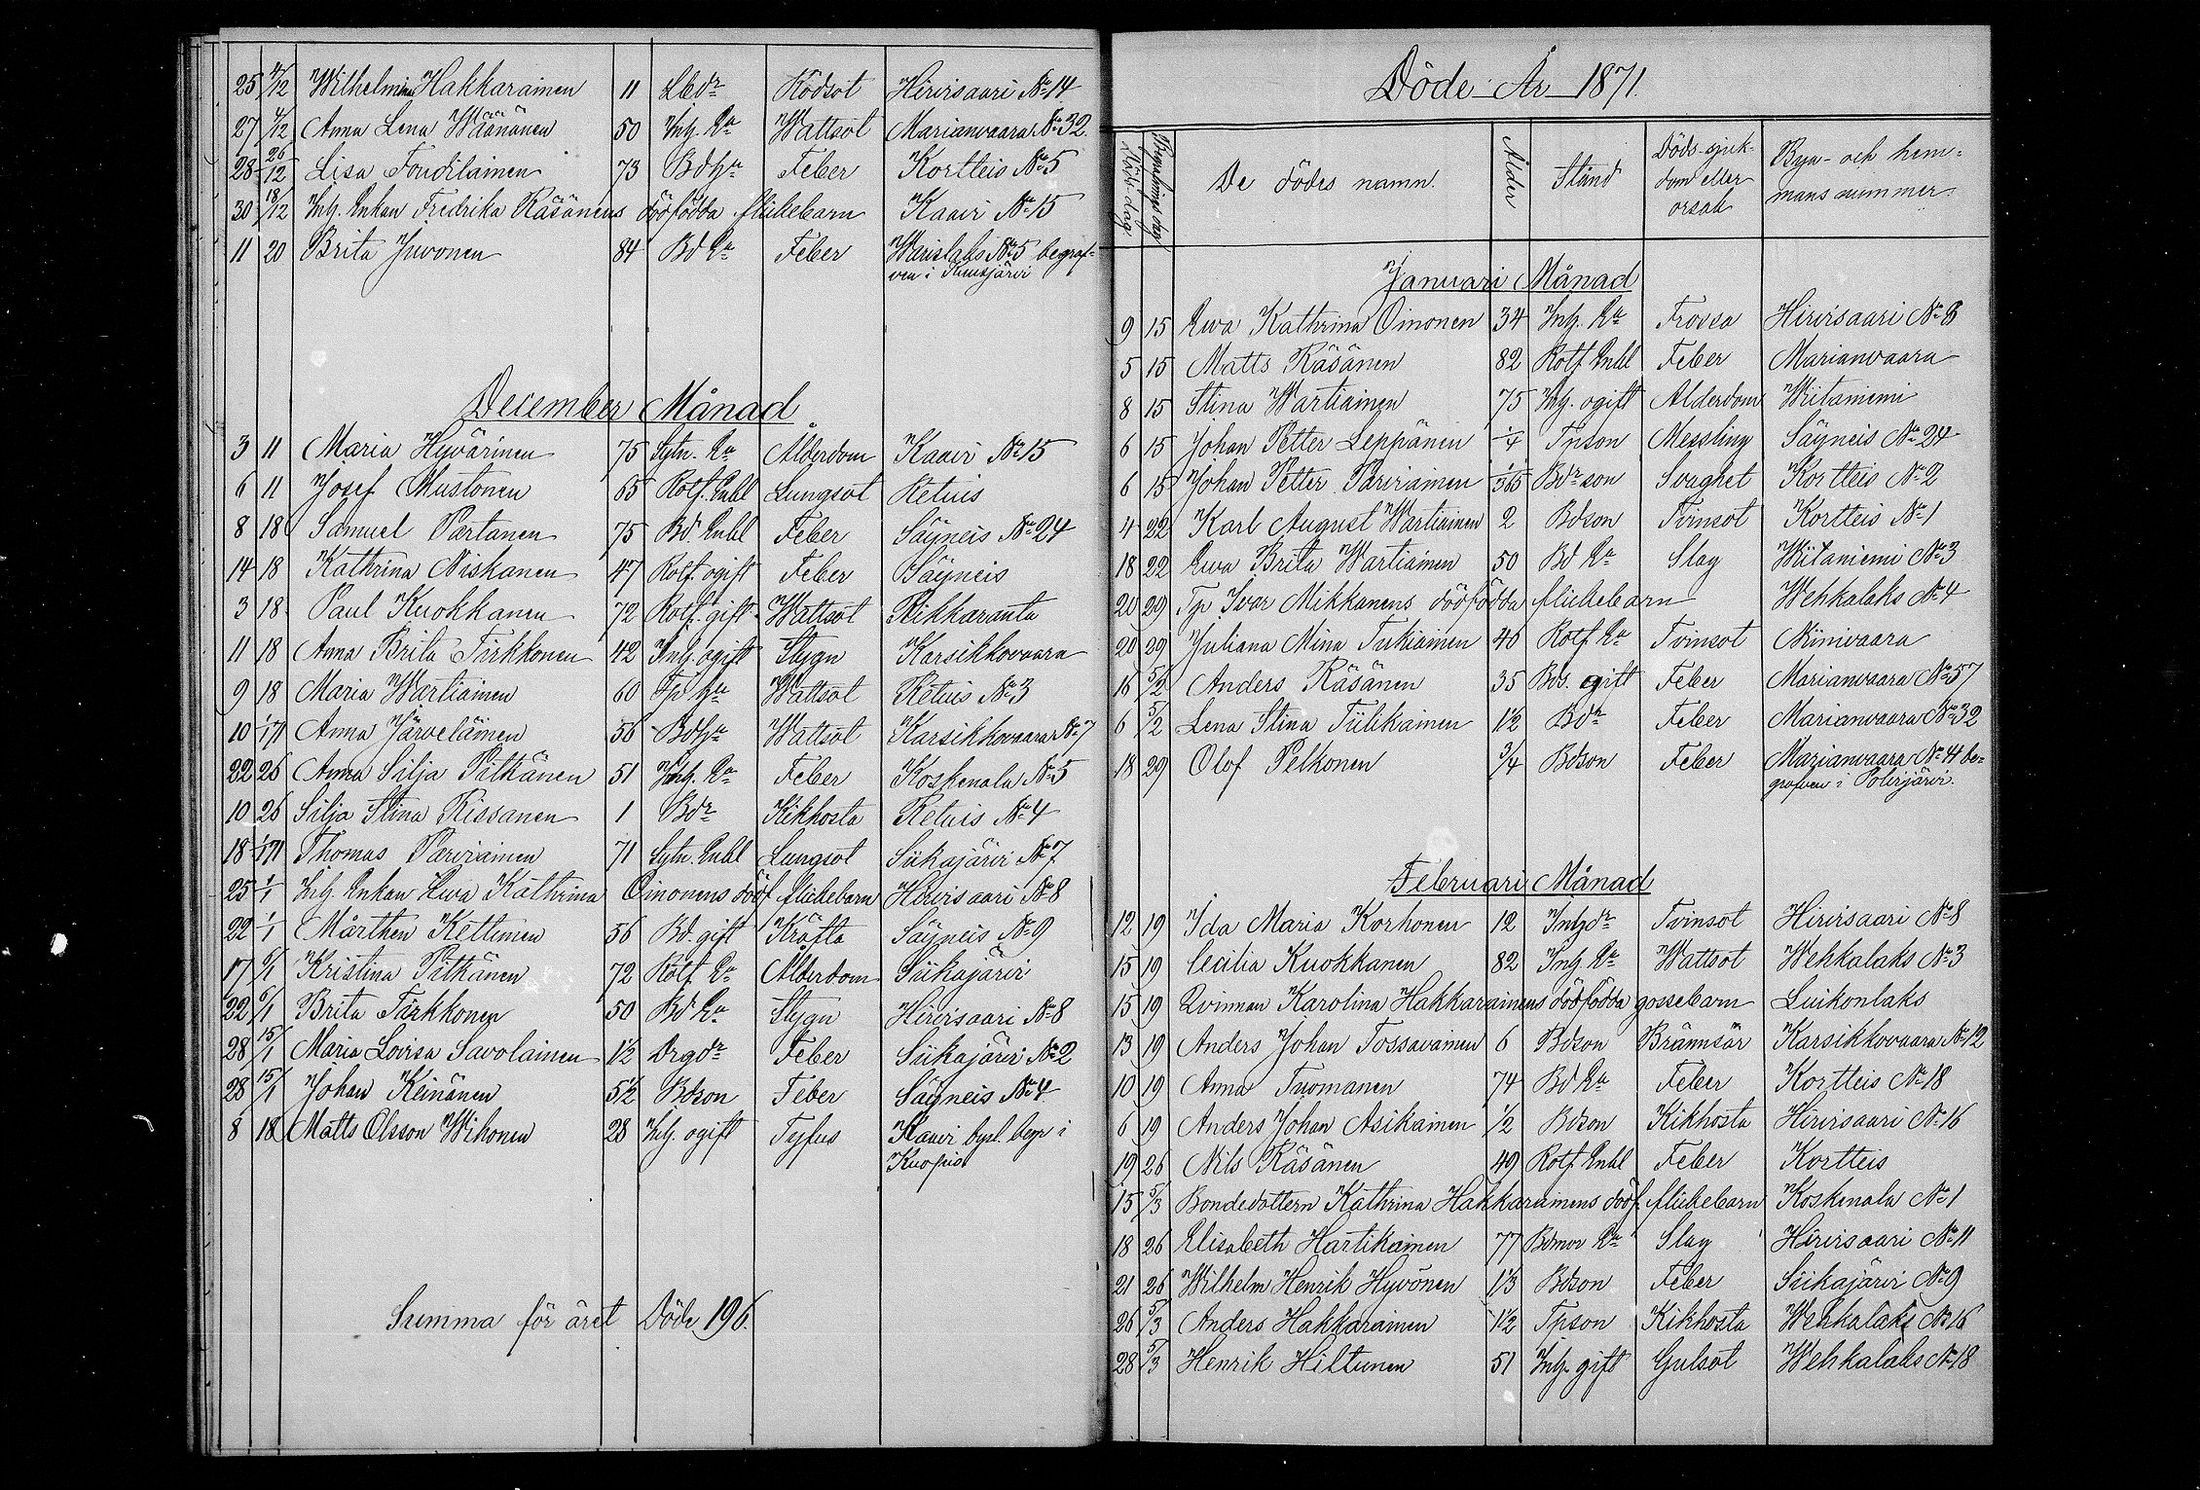 25 4/12 Wilhelmina Hakkarainen 11 Lbdr Rödsot Hirvisaari No 14
27 4/12 Anna Lena Wäänänen 50 Inh. Ea Wattsot Marianvaara No 32
28 26/12 Lisa Toudilainen 73 Bdhu Feber Kortteis No 5
30 18/12 Inh. Enkan Fredrika Räsänens dödfödda flickebarn Kaavi No 15
11 20 Brita Juvonen 84 Bd Ea Feber Warislaks No 5 begraf-
ven i Kuusjärvi
December Månad
3 11 Maria Hyvärinen 75 Sytn. Ea Ålderdom Kaavi No 15
6 11 Josef Mustonen 65 Rotf. Enkl Lungsot Retuis
8 18 Samuel Partanen 75 Bd. Enkl Feber Säyneis No 24
14 18 Kathrina Niskanen 47 Rotf. ogift Feber Säyneis
3 18 Paul Kuokkanen 72 Rotf. gift Wattsot Rikkaranta
11 18 Anna Brita Tirkkonen 42 Inh. ogift Stygn Karsikkovaara
9 18 Maria Wartiainen 60 Tp hu Wattsot Retuis No 3
10 1/71 Anna Järveläinen 56 Bdhu Wattsot Karsikkovaara No 7
22 26 Anna Silja Pitkänen 51 Inh. Ea Feber Koskenala No 5
10 26 Silja Stina Rissanen 1 Bdr Kikhosta Retuis No 4
18 1/71 Thomas Parviainen 71 Sytn. Enkl Lungsot Siikajärvi No 7
25 1/1 Inh. Enkan Ewa Kathrina Oinonens dödf. flickebarn Hirvisaari No 8
22 1/1 Mårthen Kettunen 56 Bd. gift Kräfta Säyneis No 9
17 6/1 Kristina Pitkänen 72 Rotf. Ea Ålderdom Siikajärvi
22 6/1 Brita Tirkkonen 50 Bd Ea Stygn Hirvisaari No 8
28 15/1 Maria Lovisa Savolainen 1½ Drgdr Feber Siikajärvi No 2
28 15/1 Johan Keinänen 5½ Bdson Feber Säyneis No 4
8 18 Matts Olsson Wihonen 28 Inh. ogift Tyfus Kaavi bysl. begr i
Kuopio
Summa för året Döde 196.
Döde År 1871.
Döds-dag Begrafnings dag De dödes namn. Ålder Stånd Döds-sjuk-
dom eller
orsak Byn- och hem-
mans nummer
Januari Månad
9 15 Ewa Kathrina Oinonen 34 Inh. Ea Frossa Hirvisaari No 8
5 15 Matts Räsänen 82 Rotf Enkl Feber Marianvaara
8 15 Stina Wartiainen 75 Inh. ogift Alderdom Wiitaniemi
6 15 Johan Petter Leppänen ¼ Tpson Messling Säyneis No 24
6 15 Johan Petter Parviainen 1/365 Bdrson Svaghet Kortteis No 2
4 22 Karl August Wartiainen 2 Bdson Tvinsot Kortteis No 1
18 22 Ewa Brita Wartiainen 50 Bd Ea Slag Wiitaniemi No 3
20 29 Tp. Ivar Mikkanens dödfödda flickebarn Wehkalaks No 4
20 29 Juliana Mina Tukiainen 46 Rotf Ea Tvinsot Niinivaara
16 5/2 Anders Räsänen 35 Bds. gift Feber Marianvaara No 57
6 5/2 Lena Stina Tiilikainen 1½ Bdr Feber Marianvaara No 32
18 29 Olof Pelkonen ¾ Bdson Feber Marianvaara No 41 be-
grafven i Polvijärvi.
Februari Månad
12 19 Ida Maria Korhonen 12 Inhdr Tvinsot Hirvisaari No 8
15 19 Cecilia Kuokkanen 82 Inh. Ea Wattsot Wehkalaks No 3
15 19 Qvinnan Karolina Hakkarainens dödfödda gossebarn Luikonlaks
13 19 Anders Johan Tossavainen 6 Bdson Brännsår Karsikkovaara No 12
10 19 Anna Tuomanen 74 Bd Ea Feber Kortteis No 18
6 19 Anders Johan Asikainen ½ Bdson Kikhosta Hirvisaari No 16
19 26 Nils Räsänen 49 Rotf. Enkl Feber Kortteis
15 5/3 Bondedottern Kathrina Hakkarainens dödf. flickebarn Koskenala No 1
18 26 Elisabeth Hartikainen 77 Bdmor Ea Slag Hirvisaari No 11
21 26 Wilhelm Henrik Hyvönen 1⅓ Bdson Feber Siikajärvi No 9
26 5/3 Anders Hakkarainen 1½ Tpson Kikhosta Wehkalaks No 16
28 5/3 Henrik Hiltunen 51 Inh. gift Gulsot Wehkalaks No 18